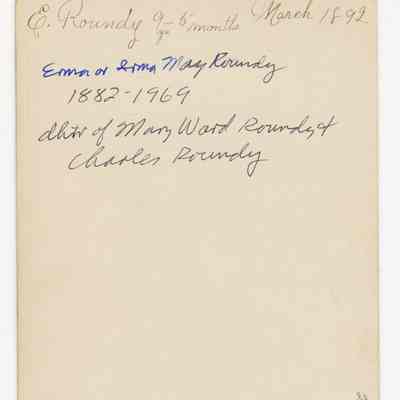 E. Roundy 9 yr 5 months March 1892
Erma or Irma May Roundy
1882-1969
dhtr of Mary Ward Roundy &
Charles Roundy